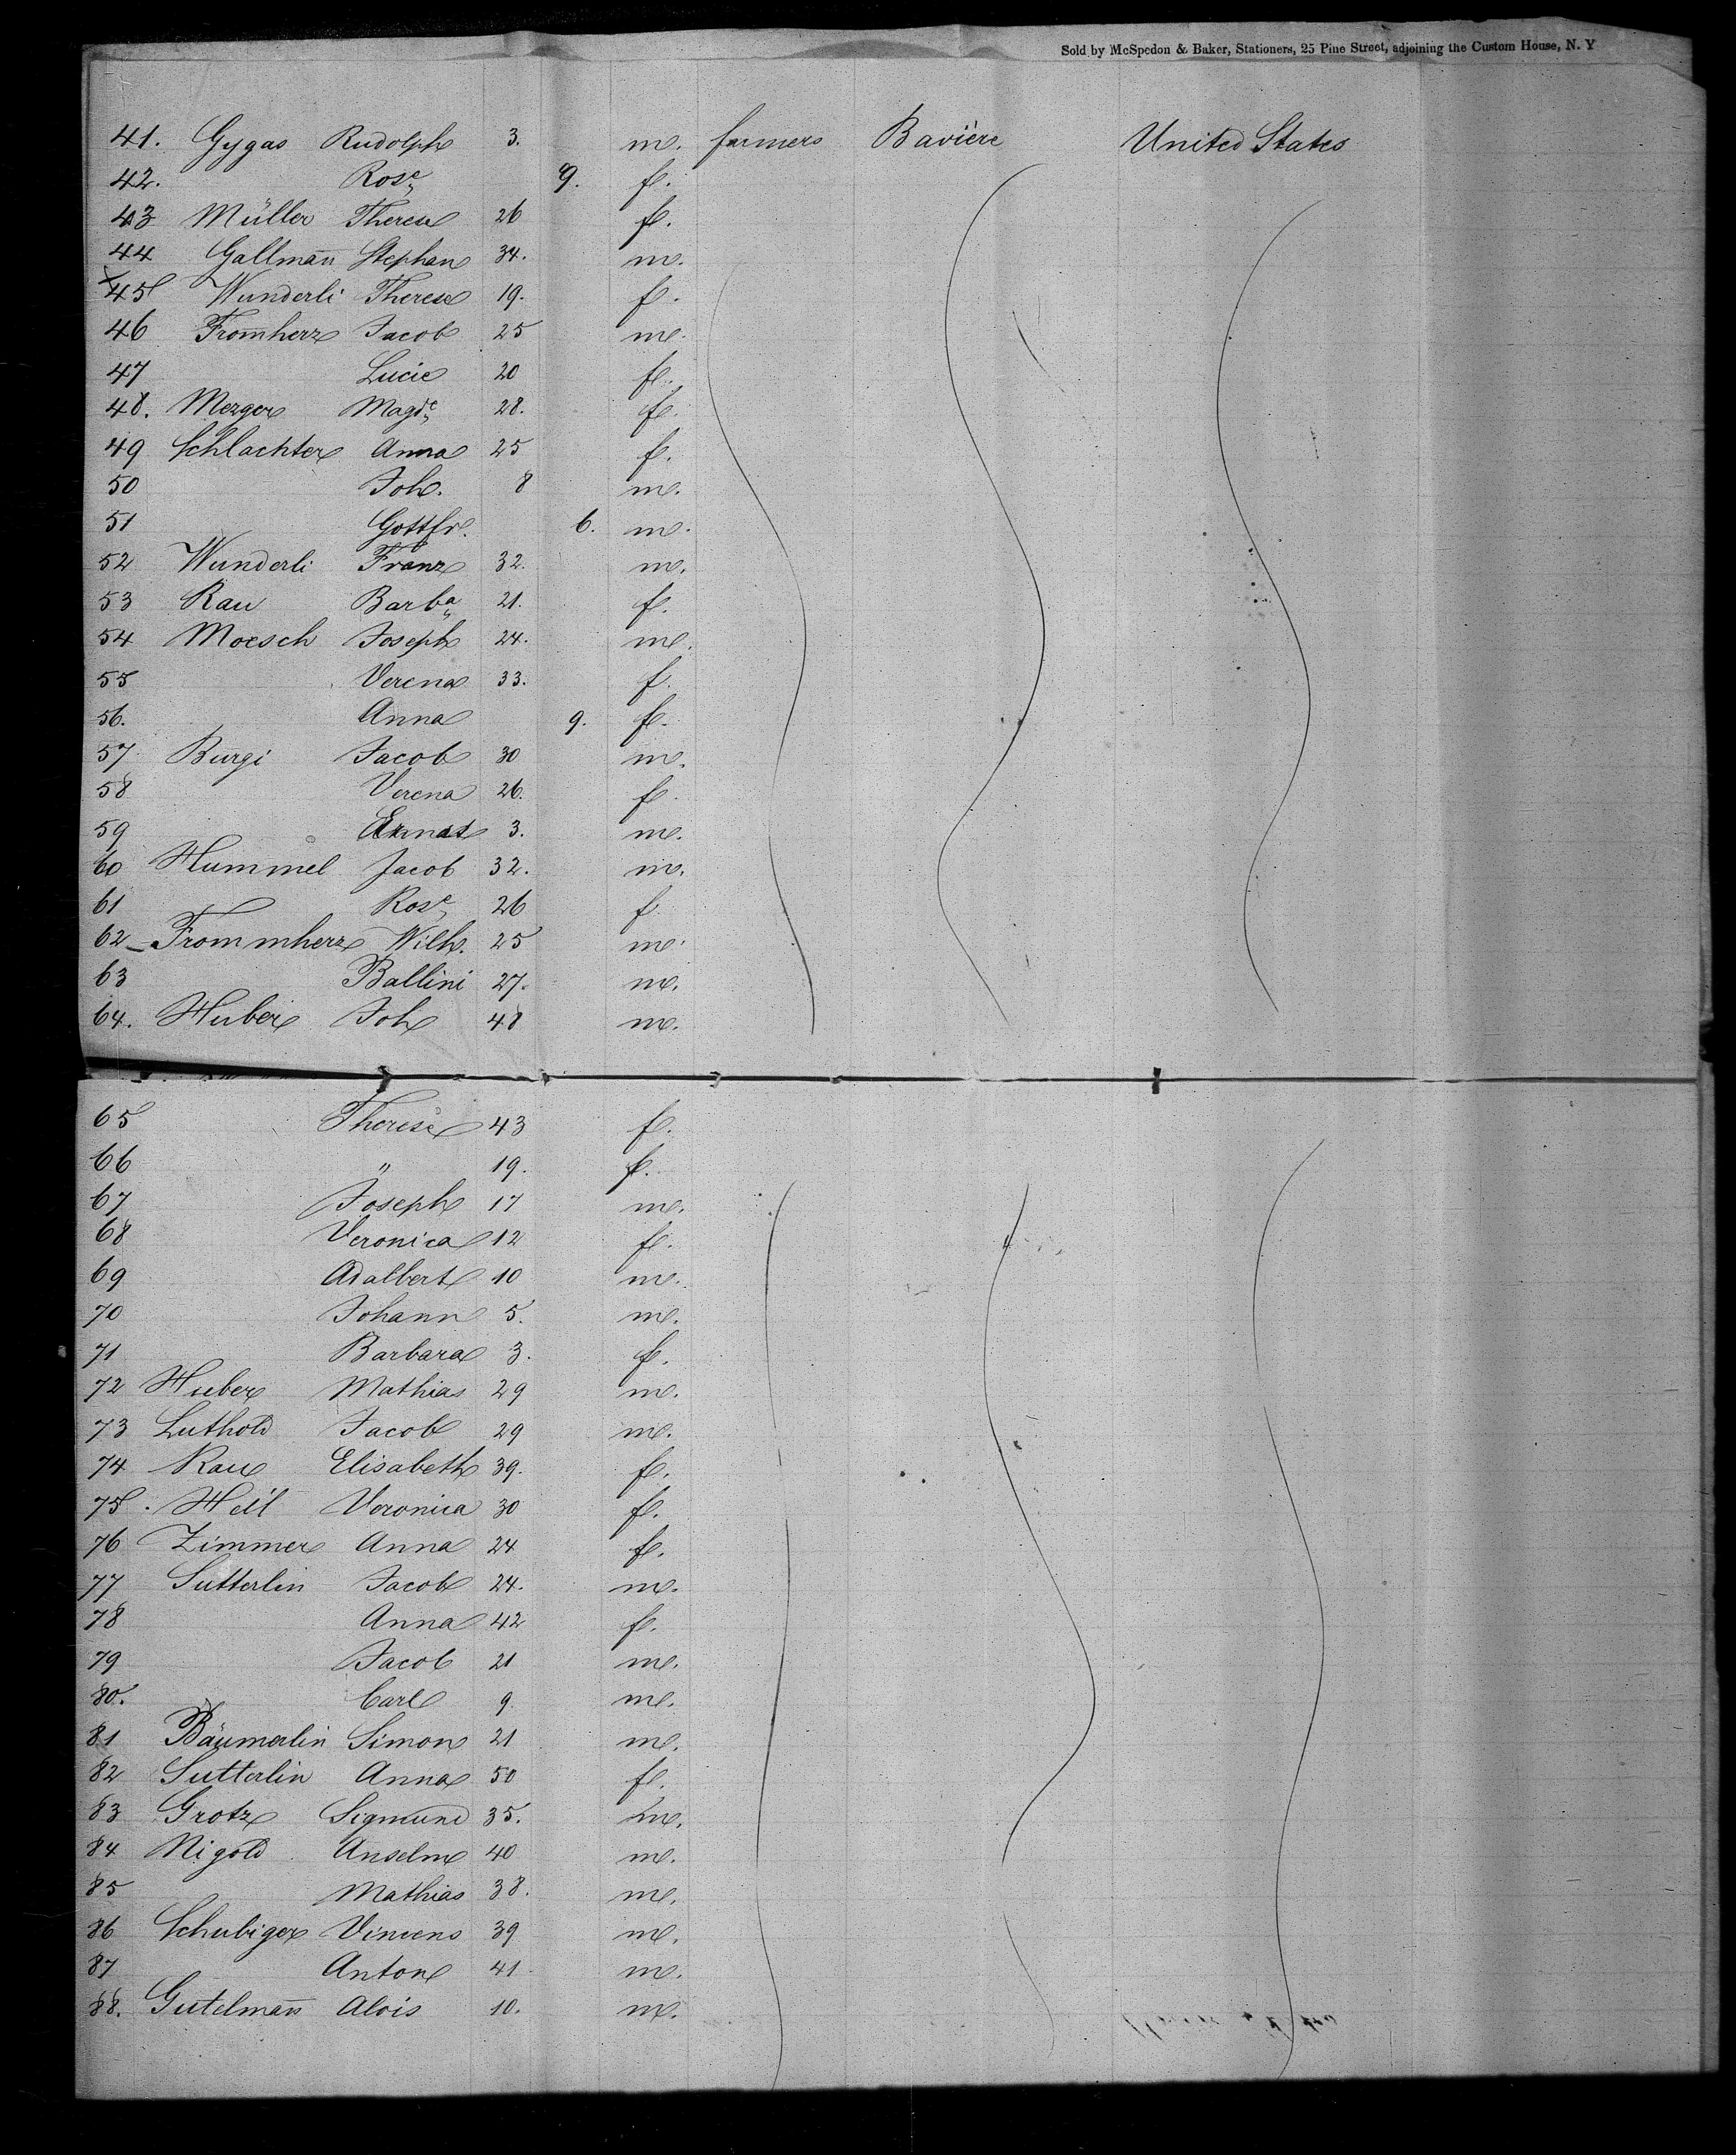 Sold by McSpedon & Baker, Stationers, 25 Pine Street, adjoining the Custom House, N. Y
41. Gygas Rudolph 3. m. farmers Bavière United States
42. Rose 9. f.
43 Müller Therese 26 f.
44 Gallmañ Stephan 34. m.
45 Wunderli Therese 19. f.
46 From̄herz Jacob 25 m.
47 Lucie 20 f.
48. Mezger Magde 28. f.
49 Schlachter Anna 25 f.
50 Joh. 8 m.
51 Gottfr. 6. m.
52 Wunderli Franz 32. m.
53 Rau Barba 21. f.
54 Moesch Joseph 24. m.
55 Verena 33. f.
56. Anna 9. f.
57 Burgi Jacob 30 m.
58 Verena 26. f.
59 Ernst 3. m.
60 Hummel Jacob 32. m.
61 Rose 26 f
62 Frommherz Wilh. 25 m.
63 Ballini 27. m.
64. Huber Joh 48 m.
65 Therese 43 f.
66 " 19. f.
67 Joseph 17 m.
68 Veronica 12 f.
69 Adalbert 10 m.
70 Johann 5. m.
71 Barbara 3. f.
72 Huber Mathias 29 m.
73 Luthold Jacob 29 m.
74 Rau Elisabeth 39. f.
75. Heil Veronica 30 f.
76 Zimmer Anna 24 f.
77 Sutterlin Jacob 24. m.
78 Anna 42 f.
79 Jacob 21 m.
80. Carl 9 m.
81 Bäumerlin Simon 21 m.
82 Sutterlin Anna 50 f.
83 Grotz Sigmund 35. m.
84 Nigold Anselm 40 m.
85 Mathias 38. m.
86 Schubiger Vincens 39 m.
87 Anton 41 m.
88. Gutelmañ Alois 10. m.